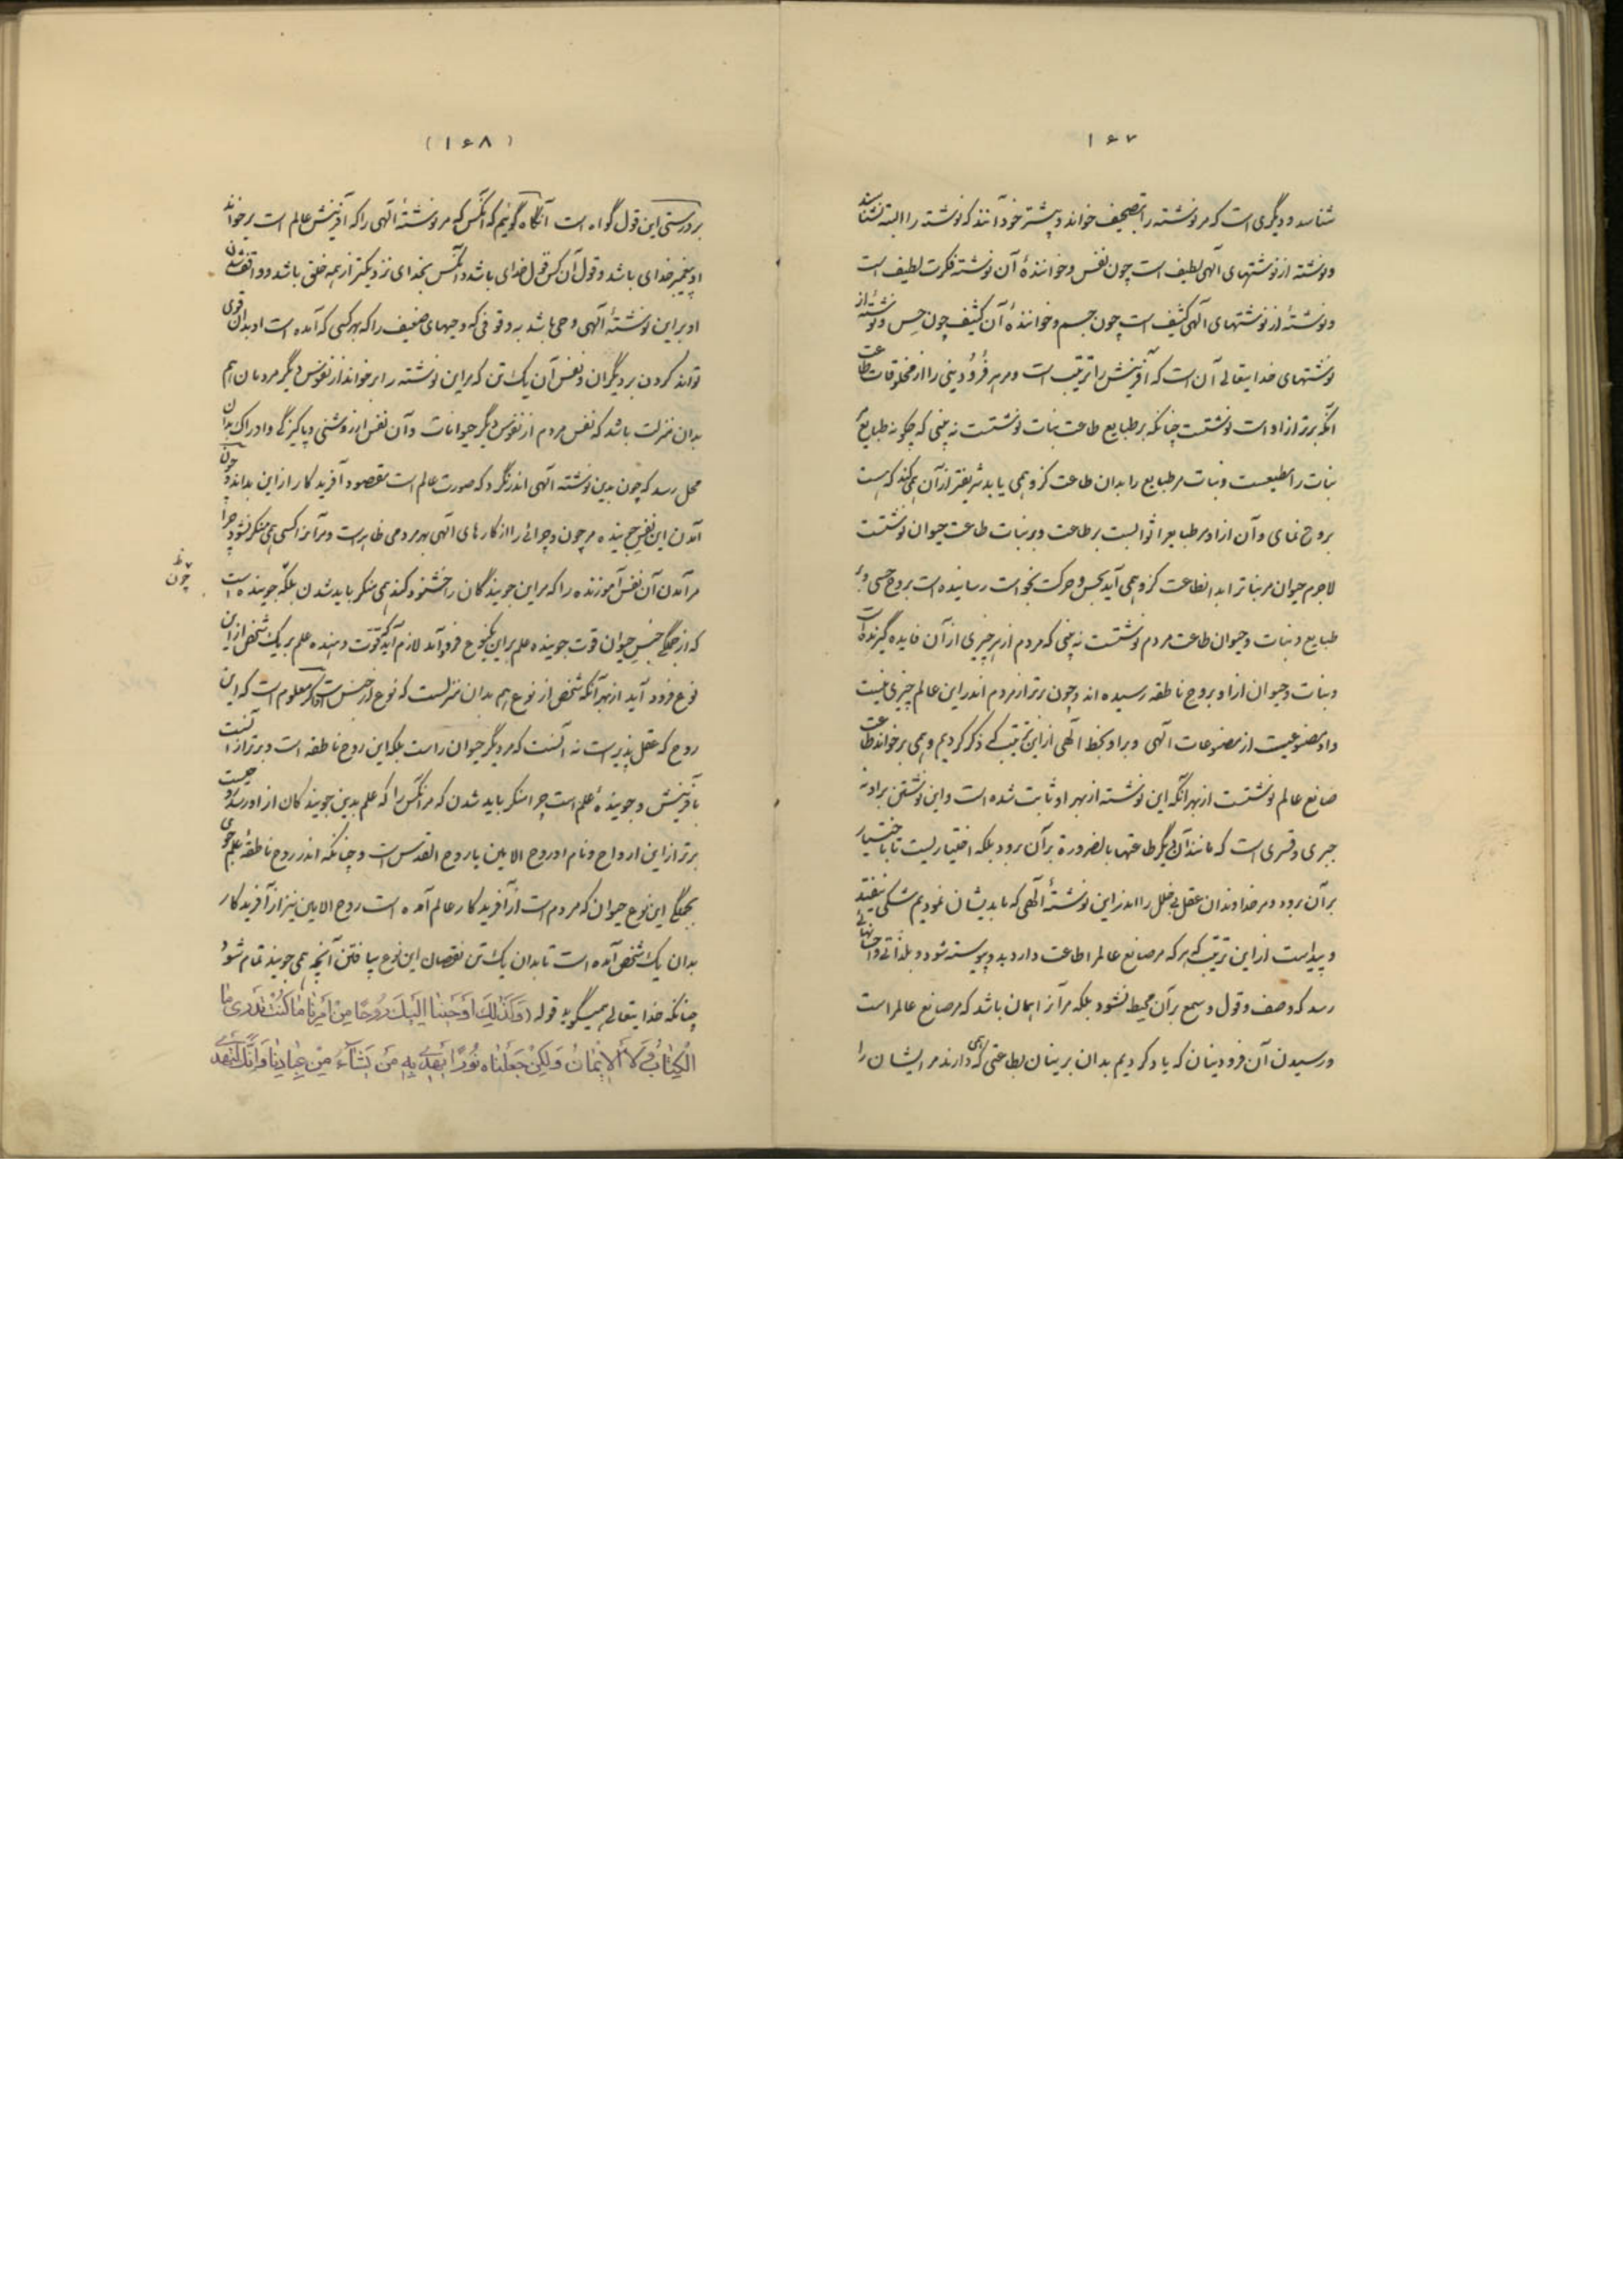 ۱۶۷
شناسد و دیگری است که مر نوشته را بتصحیف خواند و بیشتر خود آنند که نوشته را البته نشناسند
و نوشته از نوشتهای الهی لطیف است چون نفس و خوانندهٔ آن نوشته فکرت لطیف است
و نوشتهٔ از نوشتهای الهی کثیف است چون جسم و خوانندهٔ آن کثیف چون حس و نوشتهٔ از
نوشتهای خدایتعالی آن است که آفرینش را ترتیب است و مر هر فرودینی را از مخلوقات طاعت
آنکه برتر از او است نوشتست چنانکه بر طبایع طاعت نبات نوشتست نه بینی که چگونه طبایع
نبات را مطیعست و نبات مر طبایع را بدان طاعت کزو همی یابد شریفتر از آن همی کند که هست
بروح نمای و آن از او مر طبایع را ثوابست بر طاعت و بر نبات طاعت حیوان نوشتست
لاجرم حیوان مر نبات را بدانطاعت کزو همی آید بحس و حرکت بخواست رسانیده است بروح حسی و بر
طبایع و نبات و حیوان طاعت مردم نوشتست نه بینی که مردم از هر چیزی از آن فایده گیرنده است
و نبات و حیوان از او بروح ناطقه رسیده اند و چون برتر از مردم اندر این عالم چیزی نیست
و او مصنوعیست از مصنوعات الهی و بر او بخط الهی از این ترتیب که ذکر کردیم و همی برخواند طاعت
صانع عالم نوشتست از بهر آنکه این نوشته از بهر او ثابت شده است و این نوشتن بر او نه
جبری و قسری است که مانند آن دیگر طاعتها بالضرورة بر آن برود بلکه اختیاریست تا باختیار
بر آن برود و مر خداوندان عقل بی خلل را اندر این نوشتهٔ الهی که ما بدیشان نمودیم شکی نیفتد
و پیداست از این ترتیب که هر که مر صانع عالم را طاعت دارد بدو پیوسته شود و بلذاتی و احسانهائی
رسد که وصف و قول و سمع بر آن محیط نشود بلکه مر آنرا همان باشد که مر صانع عالم راست
و رسیدن آن فرودینان که یاد کردیم بدان برینان بطاعتی که همی دارند مر ایشان را
(۱۶۸)
بر درستی این قول گواه است آنگاه گوئیم که آنکس که مر نوشتهٔ الهی را که آفرینش عالم است برخواند
او پیغمبر خدای باشد و قول آن کس قول خدای باشد و آنکس بخدای نزدیکتر از همه خلق باشد و واقف شدن
او بر این نوشتهٔ الهی وحی باشد به وقوفی که وحیهای ضعیف را که بهر کسی که آمده است او بدان قوی
تواند کردن بر دیگران و نفس آن یک تن که مر این نوشته را برخواند از نفوس دیگر مردمان هم
بدان منزلت باشد که نفس مردم از نفوس دیگر حیوانات و آن نفس اندر روشنی و پاکیزگی و ادراک بدان
محل رسد که چون بدین نوشته الهی اندر نگرد که صورت عالم است مقصود آفریدگار از این بداند و چون
آمدن این نفس جوینده مر چون و چرائی را از کارهای الهی بهر مردمی ظاهر است و مر آنرا کسی همی منکر نشود چرا
مر آمدن آن نفس آموزنده را که مر این جویندگان را خشنود کند همی منکر باید شدن بلکه جوینده است
چون
که از جملگی جنس حیوان قوت جوینده علم بر این یکنوع فرود آمد لازم آید که قوت دهنده علم بر یک شخص از این
نوع فرود آید از بهر آنکه شخص از نوع هم بدان منزلست که نوع از جنس است و اگر معلوم است که این
روح که عقل پذیر است نه آنست که مر دیگر حیوان راست بلکه این روح ناطقه است و برتر از آنست
بآفرینش و جویندهٔ علم است چرا منکر باید شدن که مر آنکس را که علم بدین جویندگان از او رسد روحیست
برتر از این ارواح و نام او روح الامین یا روح القدس است و چنانکه اندر روح ناطقهٔ علم جوی
بجملگی این نوع حیوان که مردم است از آفریدگار عالم آمده است روح الامین نیز از آفریدگار
بدان یک شخص آمده است تا بدان یک تن نقصان این نوع بیافتن آنچه همی جویند تمام شود
چنانکه خدایتعالی همیگوید قوله (وَكَذٰلِكَ اَوْحَيْنٰا اِلَيْكَ رُوحًا مِنْ اَمْرِنٰا مٰا كُنْتَ تَدْرِى مَا
الْكِتٰابُ وَ لَا الْاِيْمٰانُ وَلٰكِنْ جَعَلْنٰاهُ نُورًا نَهْدِى بِهِ مَنْ نَشٰآءُ مِنْ عِبٰادِنٰا وَاِنَّكَ لَتَهْدِى